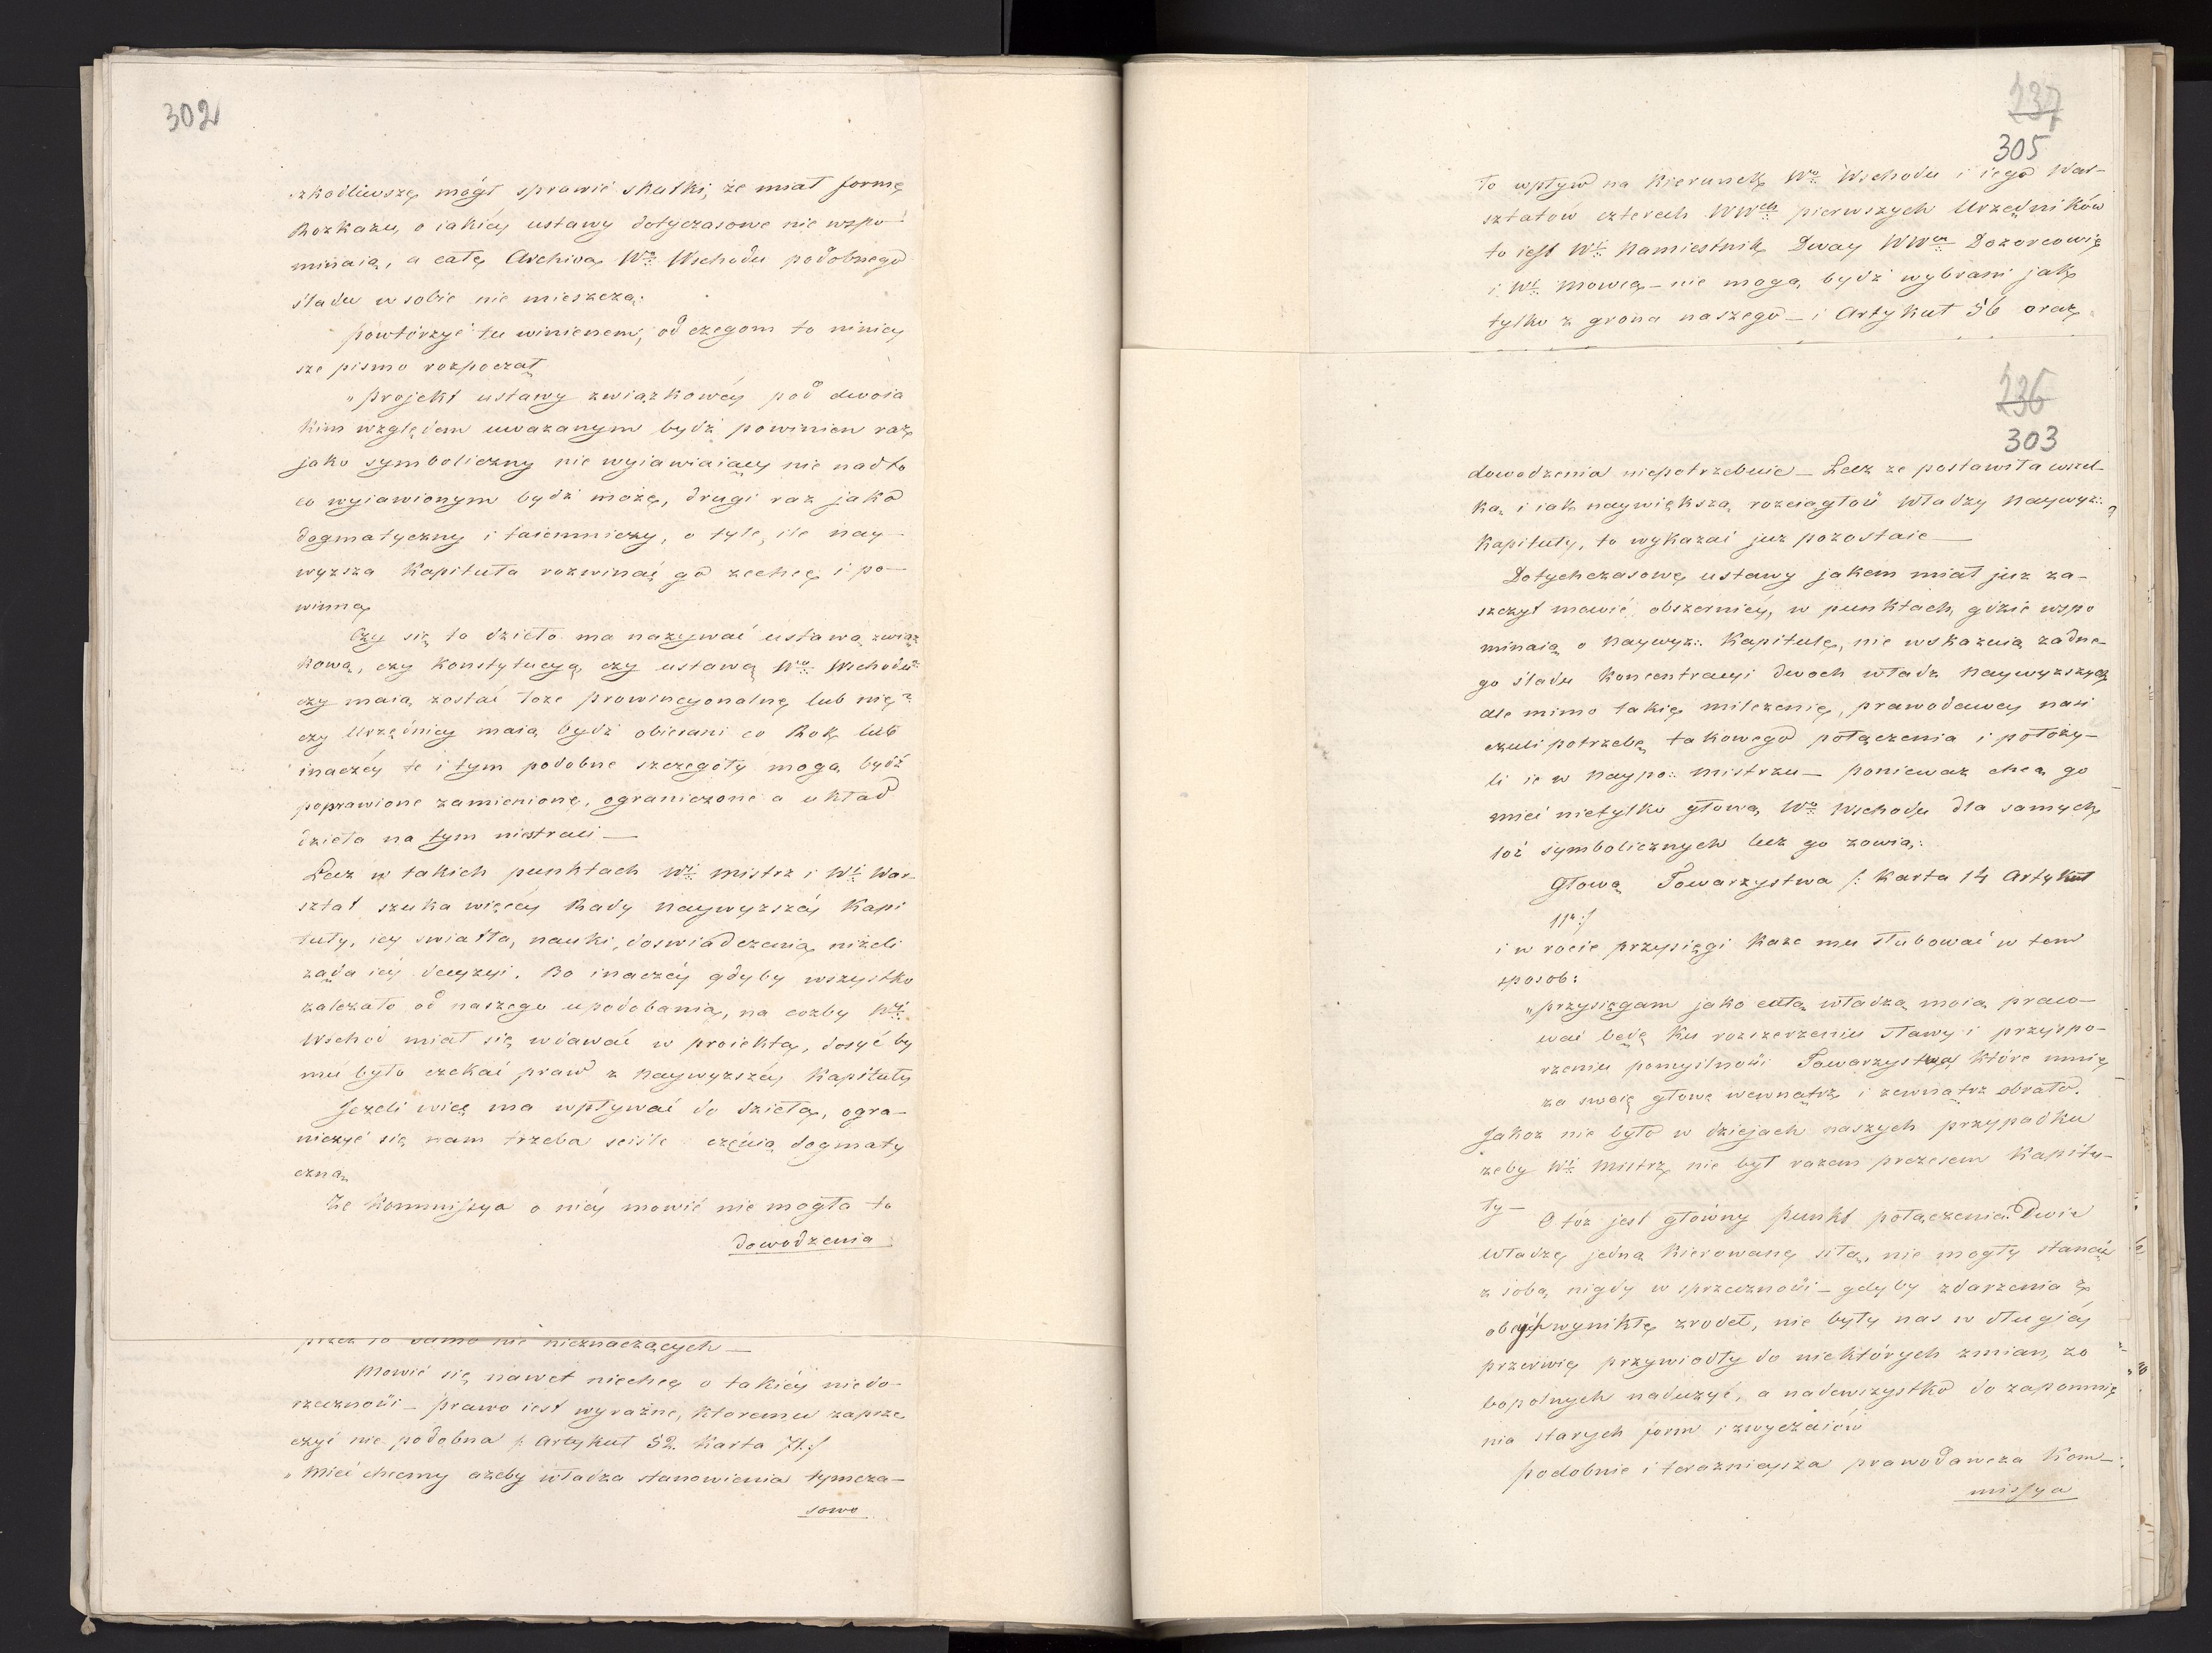 302
szkodliwsze mógł sprawić skutki, że miał formę
Rozkazu, o iakiéy ustawy dotyczasowe nie wzpo
minaią, a całe Archiva Wo∴ Wschodu podobnego
śladu w sobie nie mieszczą.
powtórzyć tu winienem, od czegom to niniey
sze pismo rozpoczął
„projekt ustawy związkowéy pod dwoia
kim względem uważanym bydź powinien raz
jako symboliczny nie wyiawiaiący nie nad to
co wyiawionym bydź może, drugi raz jako
dogmatyczny i taiemniczy, o tyle, ile nay-
wyższa Kapituła rozwinąć go zechce i po-
winna
Czy się to dzieło ma nazywać ustawą związ
kową, czy konstytucyą, czy ustawą Wgo∴ Wschodu?
czy maią zostać Loże prowincyonalne lub nie?
czy Urzędnicy maią bydź obierani co Rok lub
inaczéy te i tym podobne szczegóły mogą bydź
poprawione zamienione, ograniczone a układ
dzieła na tym niestraci —
Lecz w takich punktach Wi∴ Mistrz i Wi∴ War-
sztat szuka więcéy Rady Naywyższéy Kapi
tuły, iey światła, nauki, doswiadczenia niżeli
żąda iéy decyzyi. Bo inaczéy gdyby wszystko
zależało od naszego upodobania, na cożby Wi∴
Wschód miał się wdawać w proiekta, dosyć by
mu było czekać praw z Naywyższéy Kapituły
Jeżeli więc ma wpływać do dzieła, ogra-
niczyć się nam trzeba seisle częścią dogmaty
czną
Że Kommissya o niéy mowić nie mogła to
dowodzenia
przez to samo nie nieznaczących —
Mowić się nawet niechcę o takiéy niedo-
rzeczności — prawo iest wyraźne, ktoremu zaprze
czyć nie podobna /: Artykuł 52. Karta 71:/
„Mieć chcemy ażeby władza stanowienia tymcza-
sowo
237
305
to wpływ na kierunek Wo∴ Wschodu i iego War-
sztatów czterech WWch∴ pierwszych Urzędników
to iest Wi∴ Namiestnik Dway WWci∴ Dozorcowie
i Wi∴ Mowca — nie mogą bydź wybrani jak
tylko z grona naszego — i Artykuł 56 oraz
236
303
dowodzenia niepotrzebuie — Lecz że postawiła wszel-
ką i iak naywiększą rozciągłość Władzy Naywyż∴
Kapituły, to wykazać już pozostaie —
Dotychczasowe ustawy jakem miał już za-
szczyt mowić obszerniéy, w punktach, gdzie wspo
minaią o Naywyż∴ Kapitule, nie wskazuią żadne-
go śladu koncentracyi dwoch władz Naywyższych
ale mimo takie milczenie, prawodawcy nasi
czuli potrzebę takowego połączenia i położy-
li ie w Naypo∴ Mistrzu — ponieważ chcą go
mieć nietylko głową Wo∴ Wschodu dla samych
loż symbolicznych lecz go zowią:
Głową Towarzystwa /: Karta 14 Artykuł
11:/
i w rocie przysięgi każe mu ślubować w ten
sposob:
„przysięgam jako całą władzą moią praco-
wać będę ku rozszerzeniu sławy i przyspo-
rzeniu pomyślności Towarzystwa które mnie
za swoią głowę wewnątrz i zewnątrz obrało.
Jakoż nie było w dziejach naszych przypadku
żeby Wi∴ Mistrz nie był razem prezesem Kapitu-
ły —
Otóż jest główny punkt połączenia. Dwie
Władze jedną kierowane siłą, nie mogły stanąć
z sobą nigdy w sprzeczności — gdyby zdarzenia z
obcych wynikłe zrodeł, nie były nas w długiéy
przerwie przywiodły do niektórych zmian, zo
bopolnych nadużyć, a nadewszystko do zapomnie
nia starych form i zwyczaiów
podobnie i teraznieysza prawodawcza Kom-
missya